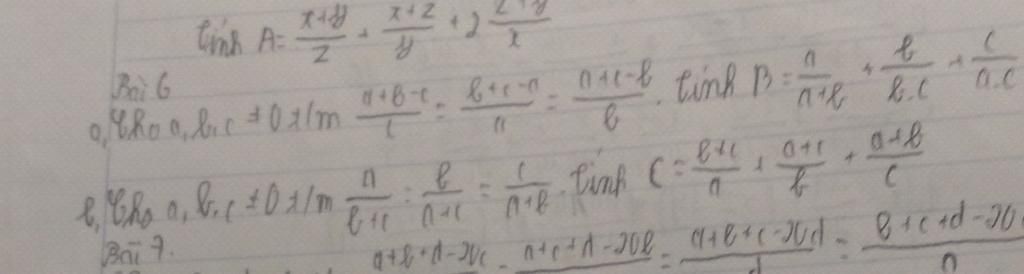 Tính A = \frac{x+y}{z} + \frac{x+z}{y} + 2 \frac{z+y}{x}
Bài 6
a, Cho a, b, c ≠ 0 t/m \frac{a+b-c}{c} = \frac{b+c-a}{a} = \frac{a+c-b}{b}. Tính B = \frac{a}{a+b} + \frac{b}{b.c} + \frac{c}{a.c}
b, Cho a, b, c ≠ 0 t/m \frac{a}{b+c} = \frac{b}{a+c} = \frac{c}{a+b}. Tính C = \frac{b+c}{a} + \frac{a+c}{b} + \frac{a+b}{c}
Bài 7.
a+b+d-20c = a+c+d-20b = \frac{a+b+c-20d}{d} = \frac{b+c+d-20}{a}